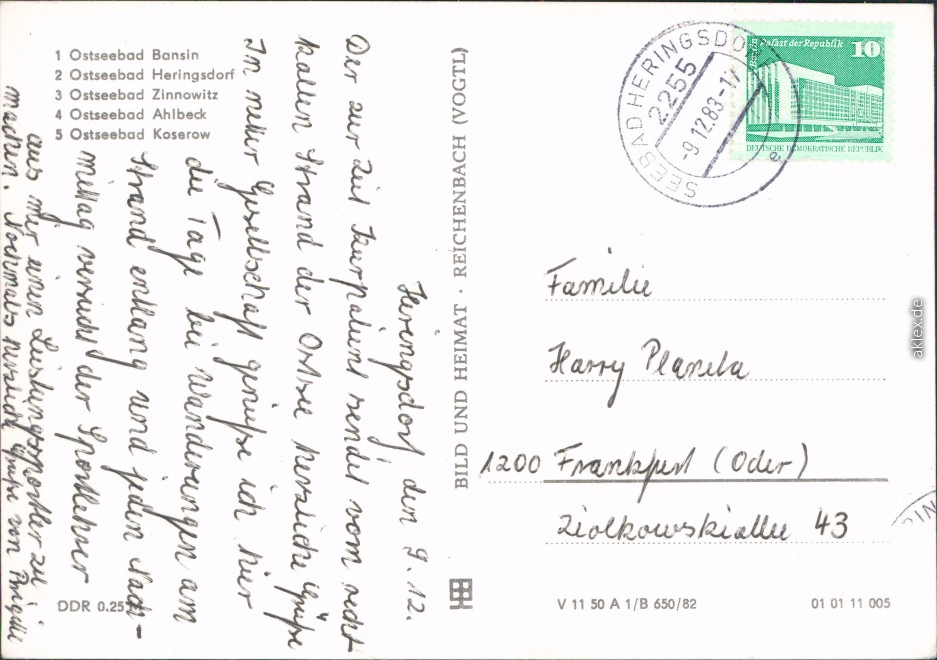 1 Ostseebad Bansin
2 Ostseebad Heringsdorf
3 Ostseebad Zinnowitz
4 Ostseebad Ahlbeck
5 Ostseebad Koserow
Heringsdorf den 9.12.
Der zur Zeit Kurpatient sendet vom recht
kalten Strand der Ostsee herzliche Grüße
In netter Gesellschaft genieße ich hier
die Tage bei Wanderungen am
Strand entlang und jeden Nach-
mittag versucht der Sportlehrer
aus mir einen Leistungssportler zu
machen. Nochmals herzliche Grüße von
DDR 0.25
BILD UND HEIMAT · REICHENBACH (VOGTL)
SEEBAD HERINGSDORF
2255
-9.12.83-17
e
Berlin Palast der Republik 10
DEUTSCHE DEMOKRATISCHE REPUBLIK
Familie
Harry
1200 Frankfurt (Oder)
Ziolkowskiallee 43
V 11 50 A 1/B 650/82
01 01 11 005
aklex.de